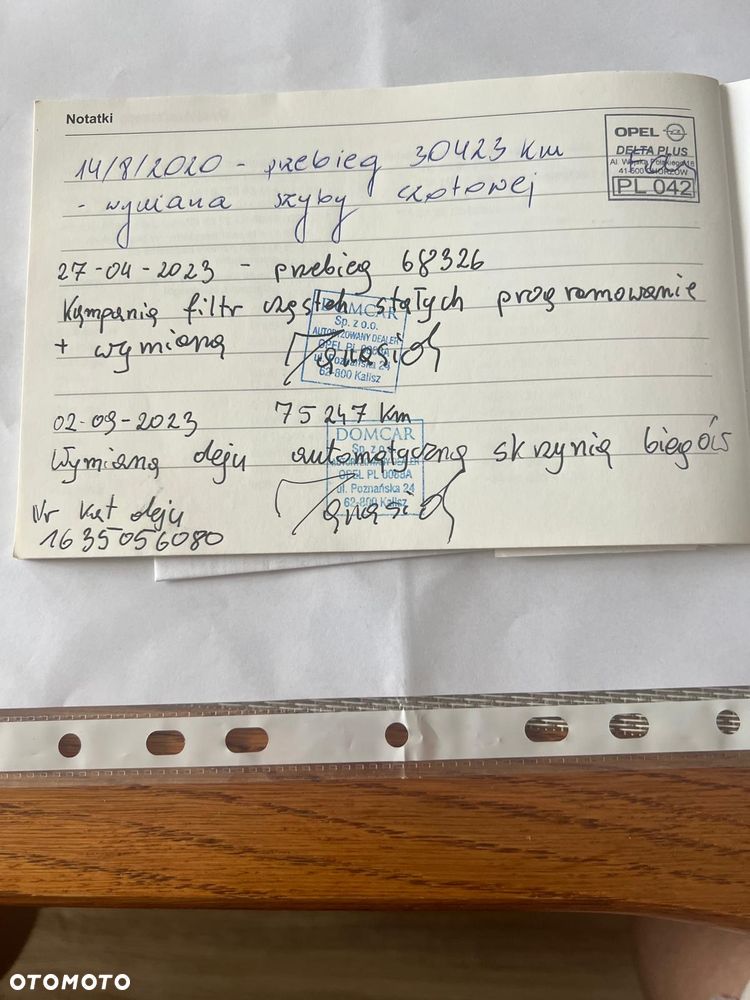 Notatki
OPEL
DELTA PLUS
Al. Wojska Polskiego 16
41-500 CHORZÓW
PL 042
14/8/2020 - przebieg 30423 km
- wymiana szyby czołowej
27-04-2023 - przebieg 68326
Kampania filtr cząstek stałych programowanie
+ wymiana
DOMCAR
Sp. z o.o.
AUTORYZOWANY DEALER
OPEL PL 0068A
ul. Poznańska 24
62-800 Kalisz
02-09-2023 75247 km
Wymiana oleju automatyczna skrzynia biegów
DOMCAR
Sp. z o.o.
AUTORYZOWANY DEALER
OPEL PL 0068A
ul. Poznańska 24
62-800 Kalisz
Nr kat oleju
1635056080
OTOMOTO